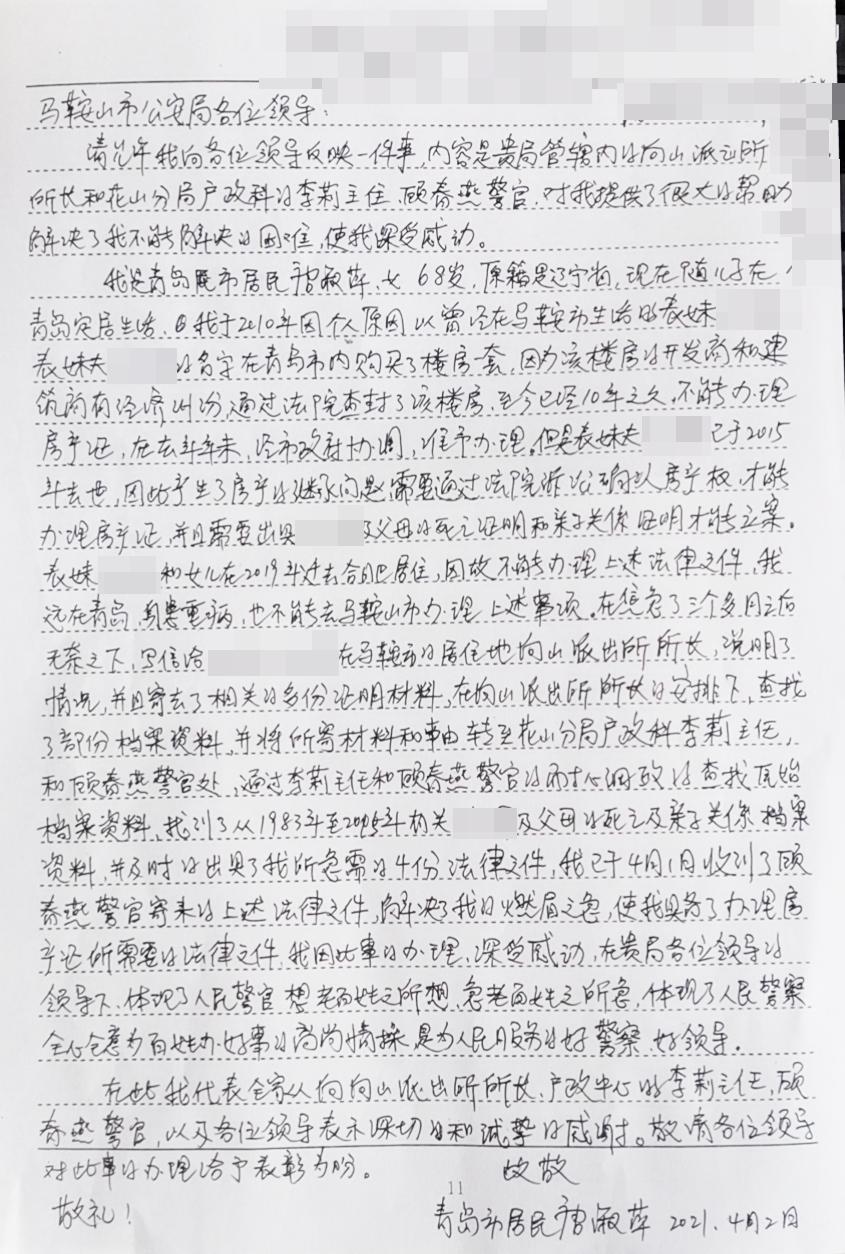 马鞍山市公安局各位领导：
请允许我向各位领导反映一件事，内容是贵局管辖内的向山派出所
所长和花山分局户政科的李莉主任、顾春燕警官，对我提供了很大的帮助
解决了我不能解决的困难，使我深受感动。
我是青岛市居民 女 68岁，原籍是辽宁省，现在随儿子在
青岛定居生活。因我于2010年因个人原因以曾经在马鞍市生活的表妹
表妹夫 的名字在青岛市内购买了楼房一套，因为该楼房的开发商和建
筑商有经济纠纷，通过法院查封了该楼房，至今已经10年之久，不能办理
房产证，在去年年末，经市政府协调，准予办理。但是表妹夫 已于2015
年去世，因此产生了房产的继承问题需要通过法院诉讼确认房产权，才能
办理房产证，并且需要出具 及父母的死亡证明和亲子关係证明才能立案。
表妹 和女儿在2019年过去合肥居住，因故不能办理上述法律文件，我
远在青岛，身患重病，也不能去马鞍山市办理上述事项。在焦急了三个多月之后
无奈之下，写信给 在马鞍市的居住地向山派出所所长，说明了
情况，并且寄去了相关的多份证明材料，在向山派出所所长的安排下，查找
了部份档案资料，并将所寄材料和事由转至花山分局户政科李莉主任，
和顾春燕警官处，通过李莉主任和顾春燕警官的耐心细致的查找原始
档案资料，找到了从1983年至2005年有关 及父母的死亡及亲子关係档案
资料，并及时的出具了我所急需的4份法律文件，我已于4月1日收到了顾
春燕警官寄来的上述法律文件，解决了我的燃眉之急，使我具备了办理房
产证所需要的法律文件，我因此事的办理，深受感动，在贵局各位领导的
领导下，体现了人民警官想老百姓之所想，急老百姓之所急，体现了人民警察
全心全意为百姓办好事的高尚情操，是为人民服务的好警察、好领导。
在此我代表全家人向向山派出所所长、户政中心的李莉主任，顾
春燕警官，以及各位领导表示深切的和诚挚的感谢。敬请各位领导
对此事的办理给予表彰为盼。
敬礼！
11
青岛市居民 2021.4月2日